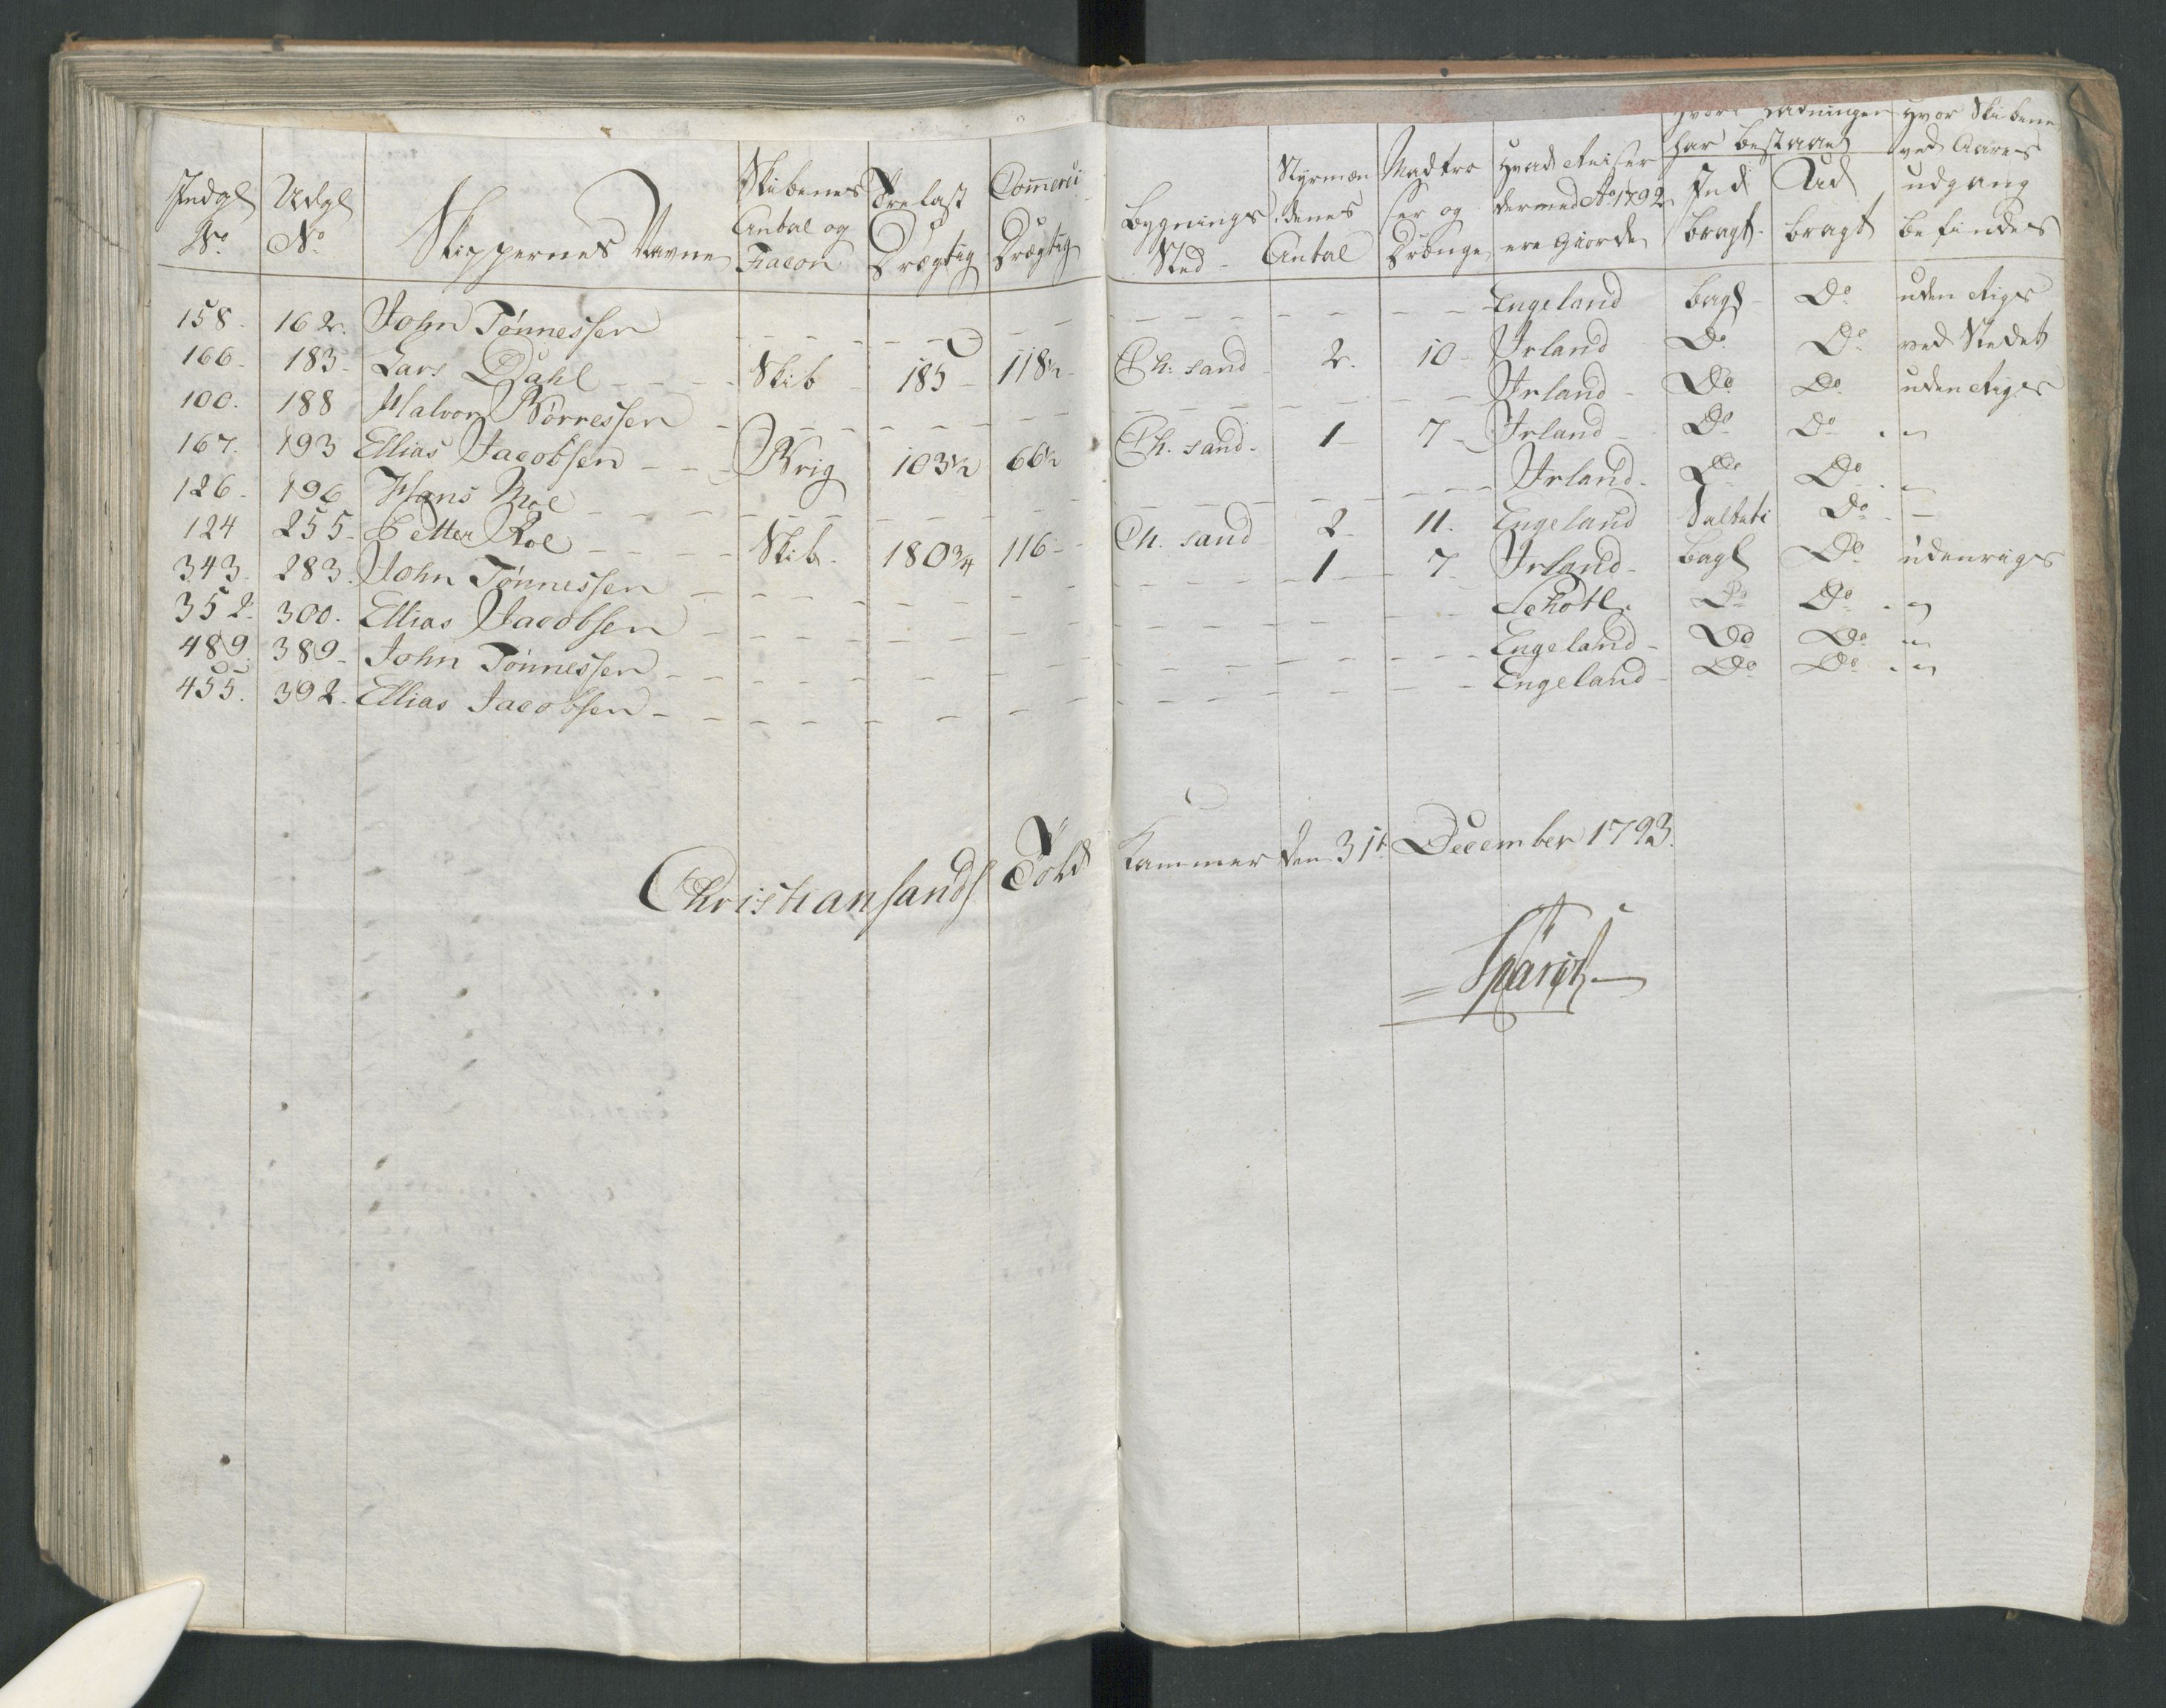 Indgl No Udgl No Skippernes Navne Skibenes Antal og Facon Trelast Drægtig Commerci Drægtig Bygnings Sted Styrmændenes Antal Madtroser og Drænge Hvad Reiser dermed Ao 1792 ere Giorde Hvori Ladningen har bestaaet Ind bragt Ud bragt Hvor Skibene ved Aarets udgang befindes
158. 162. John Tönnessen - - - - - Engeland Bagl Do uden Riges
166. 183. Lars Dahl - - Skib 185 118½ Ch: sand 2. 10 Irland Do Do ved Stedet
100. 188 Halvor Börressen - - - - - Irland Do Do uden Riges
167. 193 Ellias Jacobsen - - Brig 103½ 66½ Ch. sand. 1 7 Irland Do Do "
126. 196 Hans Moe - - - - - Irland. Do Do "
124 255. Petter Roe - - Skib. 180¾ 116 Ch. sand 2. 11. Engeland Do -
343. 283. John Tönnessen - - - 1 7 Irland Bagl Do udenriges
352. 300. Ellias Jacobsen - - - - - Schotl. Do Do "
489. 389. John Tönnessen - - - - - Engeland Do Do "
455. 392. Ellias Jacobsen - - - - - Engeland Do Do "
Christiansands Told Kammer den 31t December 1793.